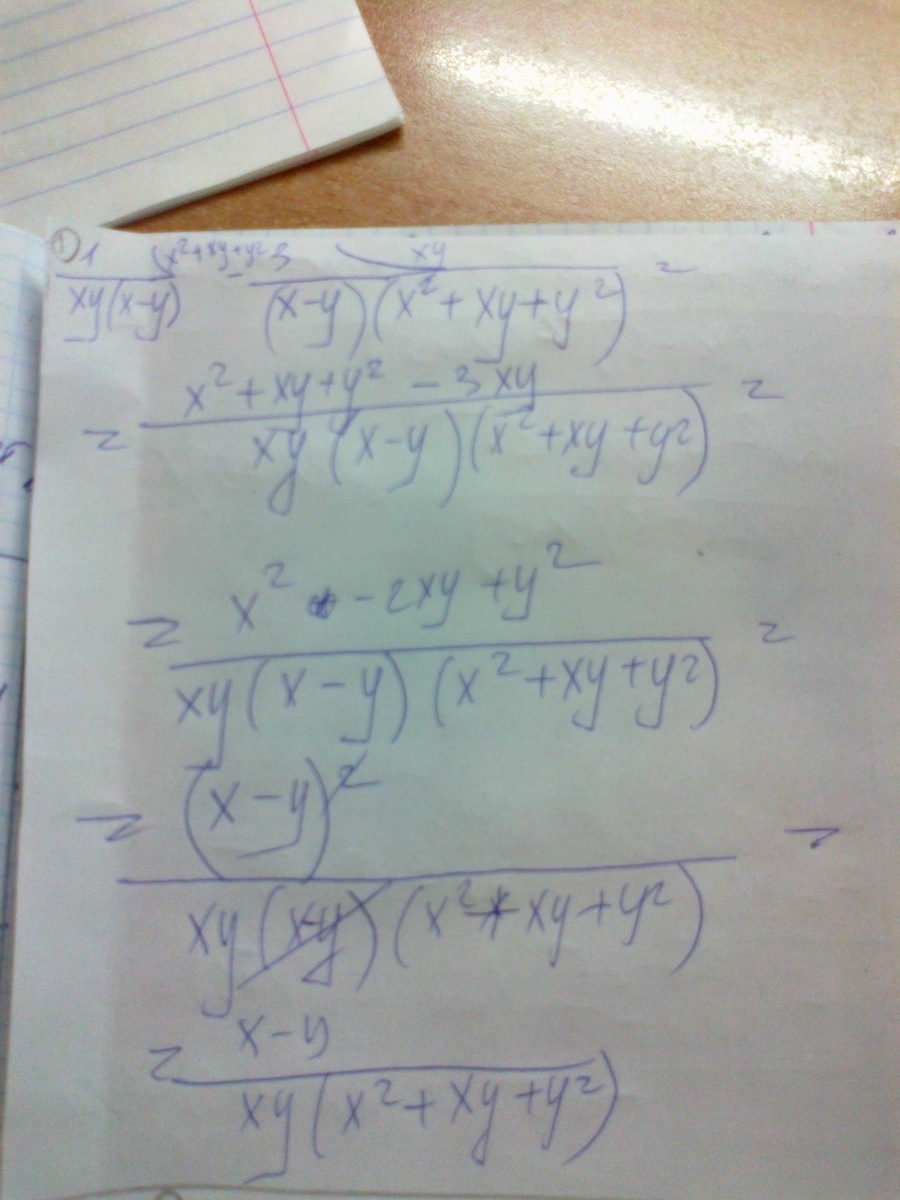 ① 1 (x²+xy+y² - 3 xy
xy(x-y) (x-y)(x²+xy+y²) =
x²+xy+y² - 3xy
= xy(x-y)(x²+xy+y²) =
= x² - 2xy +y²
xy(x-y)(x²+xy+y²) =
= (x-y)²
xy(xy)(x²+xy+y²) =
x-y
= xy(x²+xy+y²)